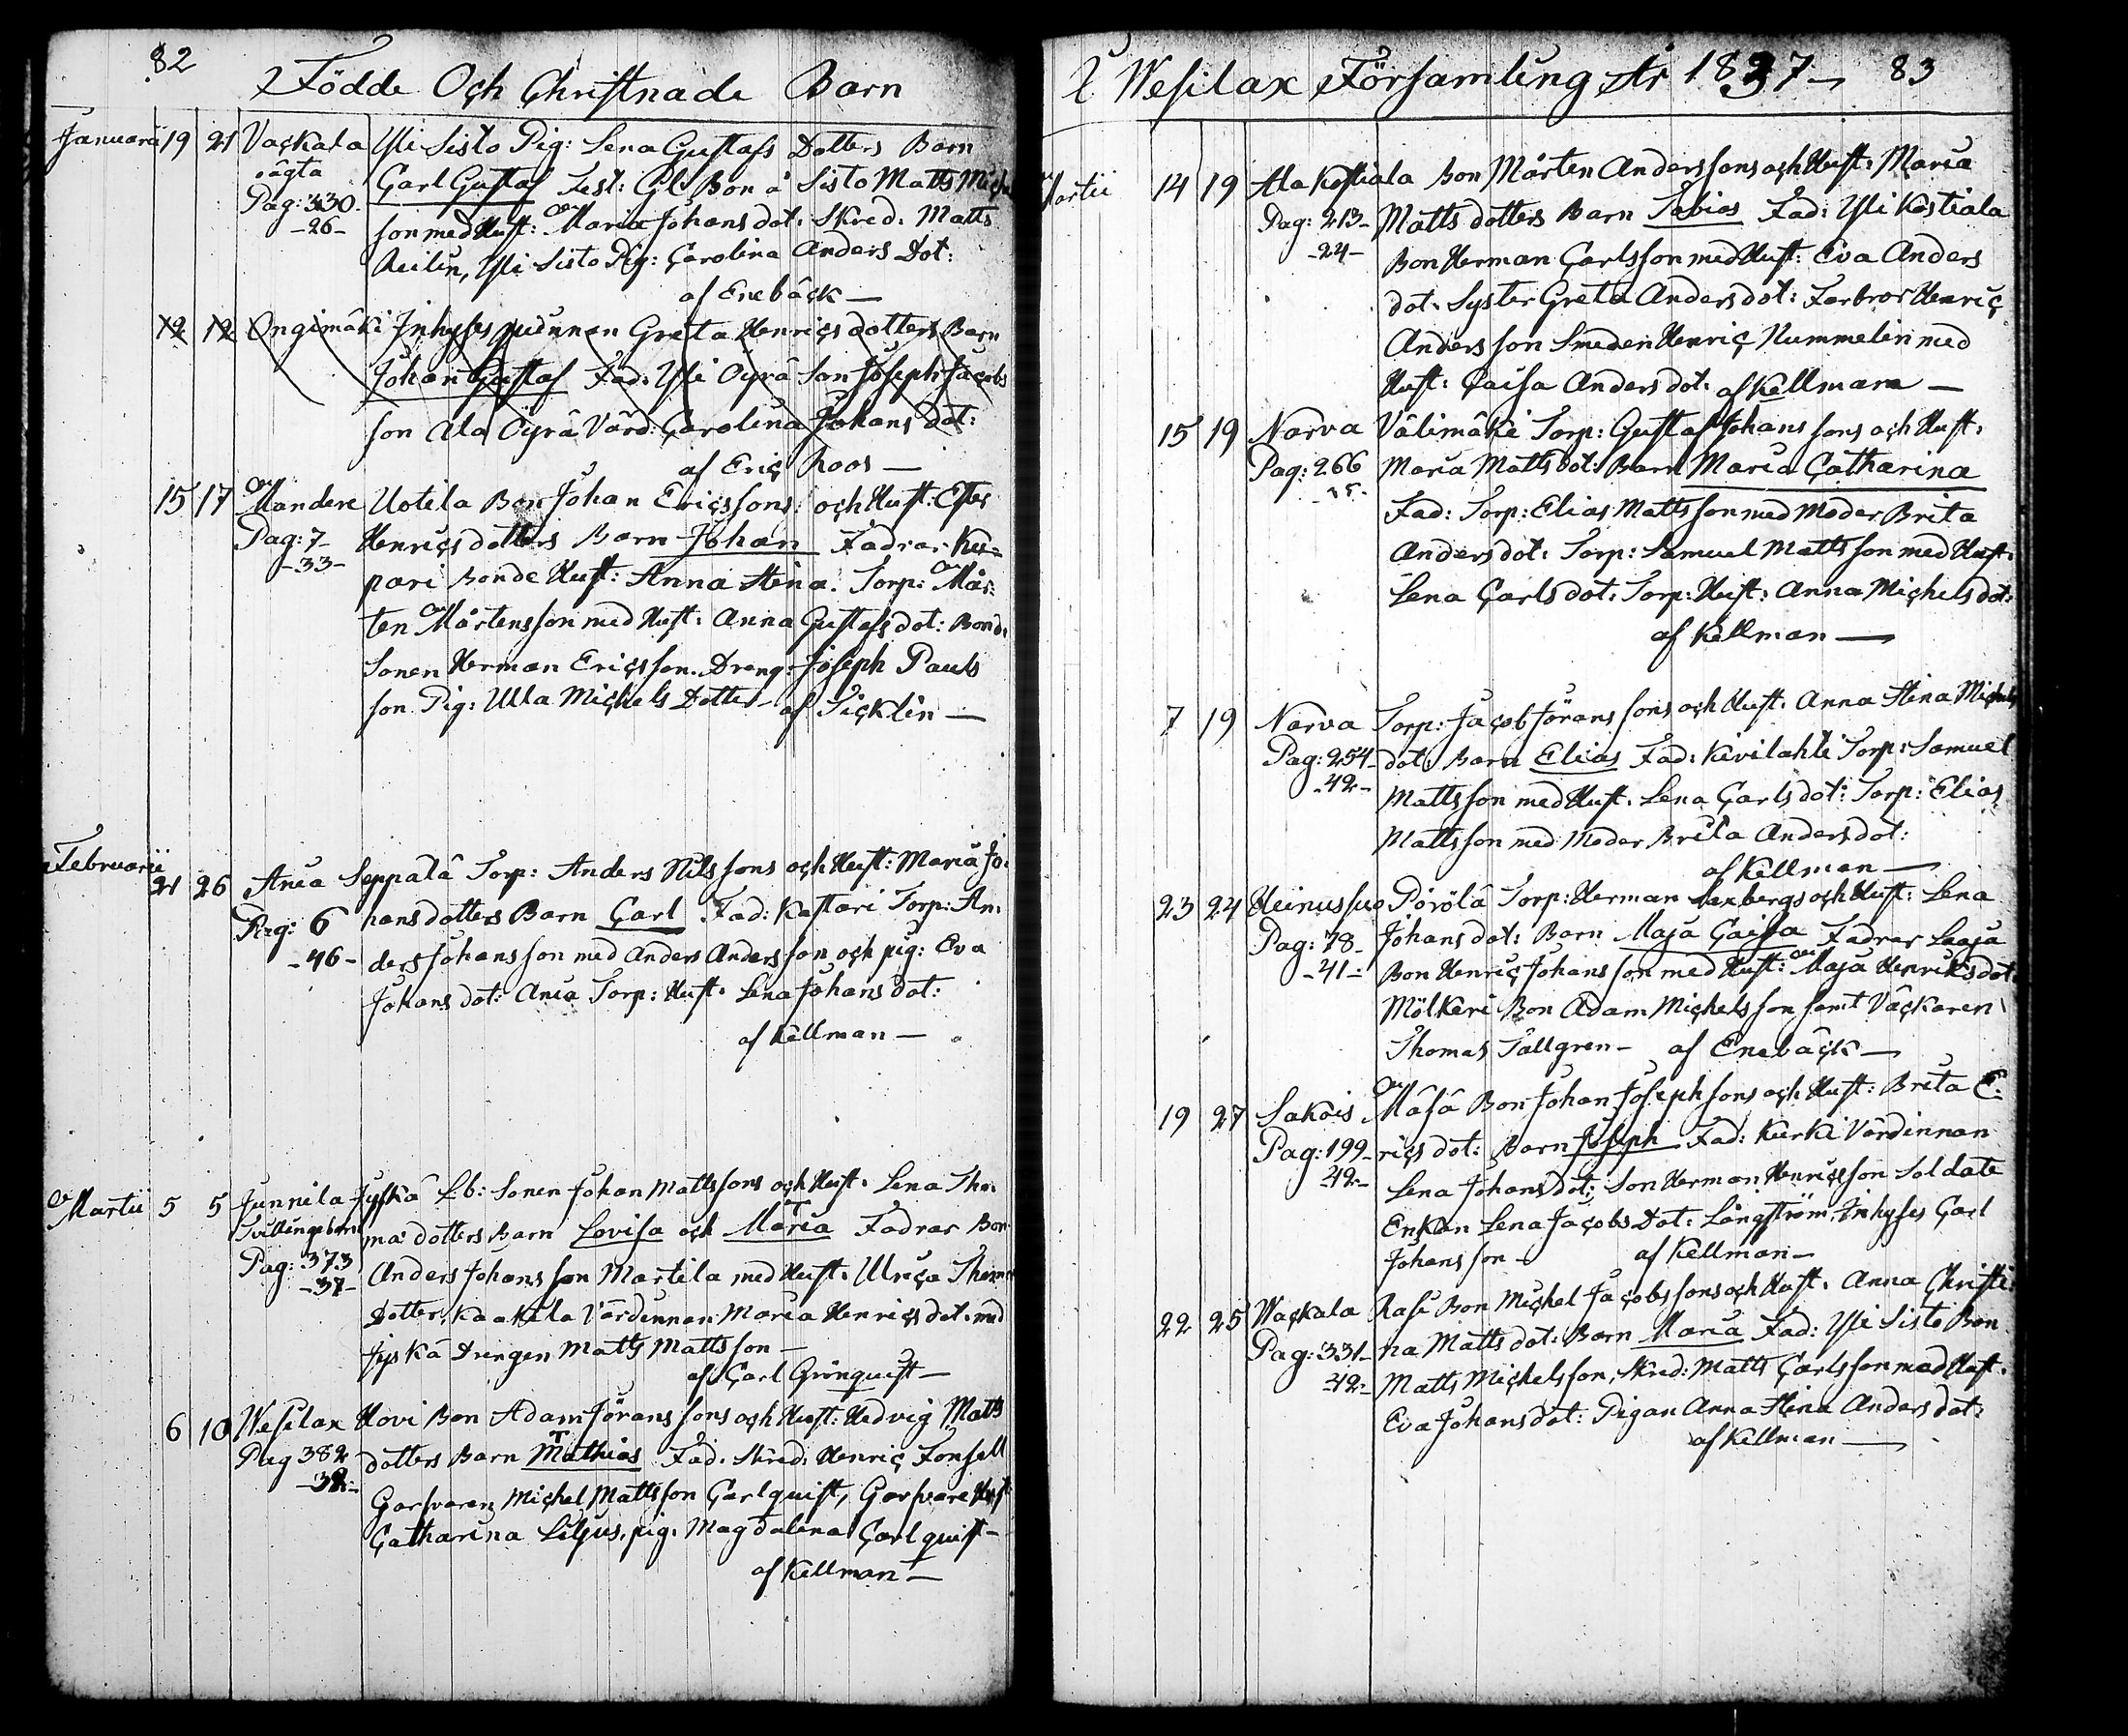 82
Födde Och Christnade Barn
Januarii 19 21 Vackala Yli Sisto Pig: Lena Gustafs Dotters Barn
oägta Carl Gustaf Test: Gl: Bon å Sisto Matts Mich
Pag: 330. son med Hust: Maria Johans dot: Skred: Matts
-26- Reilin, Yli Sisto Pig: Carolina Anders Dot:
af Enebäck —
12 12 Ongimäki Inhyses qvinnan Greta Henrics dotters Barn
Johan Gustaf Fad: Yli Öyrä Son Joseph Jacobs
son Ala Öyrä Värd: Carolina Johans dot:
af Eric Roos —
15 17 Mandere Uotila Bon Johan Ericssons och Hust: Ester
Pag: 7- Henrics dotters Barn Johan Fadrar Ku=
-33- pari Bonde Hust: Anna Stina. Torp: Mår:
ten Mårtensson med Hust: Anna Gustafs dot: Bond:
Sonen Herman Ericsson. Dreng: Joseph Pauls
son Pig: Ulla Michels Dotter- af Sicklin —
Februarii
21 26 Ania Seppälä Torp: Anders Nilssons och Hust: Maria Jo:
Pag: 6 hans dotters Barn Carl Fad: Kaftari Torp: An:
-46- ders Johansson med Anders Andersson och pig: Eva
Johans dot: Ania Torp: Hust: Lena Johans dot:
af Kellman —
Martii 5 5 Junnila Jyskä Lb: Sonen Johan Mattssons och Hust: Lena Tho:
Tvillingebarn ma dotters Barn Lovisa och Maria Fadrar Bon
Pag: 373 Anders Johansson Martila med Hust: Ulrica Thoma
-37- Dotter, Kaakila Värdinnan Maria Henrics dot: med
Jyskä Drengen Matts Mattsson —
af Carl Grönquist —
6 10 Wesilax Hovi Bon Adam Jöranssons och Hust: Hedvig Matts
Pag 382 dotters Barn Mathias Fad: Skred: Henric Fonsell
-38- Garfvaren Michel Mattsson Carlquist, Garfvare Hust
Catharina Liljus, pig: Magdalena Carlquist —
af Kellman —
I Wesilax Församling År 1837 — 83
Martii 14 19 Ala Kostiala Bon Mårten Anderssons och Hust: Maria
Pag: 213- Matts dotters Barn Tobias Fad: Yli Kostiala
-24- Bon Herman Carlsson med Hust: Eva Anders
dot: Syster Greta Anders dot: Farbror Henric
Andersson Smeden Henric Nummelin med
Hust: Caisa Anders dot: af Kellman —
15 19 Narva Välimäki Torp: Gustaf Johanssons och Hust:
Pag: 266 Maria Matts dot: Barn Maria Catharina
Fad: Torp: Elias Mattsson med Moder Brita
Anders dot: Torp: Samuel Mattsson med Hust:
Lena Carls dot: Torp: Hust: Anna Michels dot:
af Kellman —
7 19 Narva Torp: Jacob Jöranssons och Hust: Anna Stina Michels
Pag: 254- dot: Barn Elias Fad: Kivilahti Torp: Samuel
-42- Mattsson med Hust: Lena Carls dot: Torp: Elias
Mattsson med Moder Brita Anders dot:
af Kellman —
23 24 Heinussuo Pörölä Torp: Herman Laxbergs och Hust: Lena
Pag: 78- Johans dot: Barn Maja Caisa Fadrar Laaja
-41- Bon Henric Johansson med Hust: Maja Henriks dot:
Mölkeri Bon Adam Michelsson samt Väckaren
Thomas Tallgren — af Enebäck —
19 27 Sakois Mäsä Bon Johan Josephsons och Hust: Brita E:
Pag: 199- rics dot: Barn Joseph Fad: Kurki Värdinnan
42- Lena Johans dot: Son Herman Henricsson Soldate
Enkan Lena Jacobs Dot: Långström, Inhyses Carl
Johansson — af Kellman —
22 25 Wackala Rasi Bon Michel Jacobssons och Hust: Anna Christi
Pag: 331- na Matts dot: Barn Maria Fad: Yli Sisto Bon
-42- Matts Michelsson, Skred: Matts Carlsson med Hust:
Eva Johans dot: Pigan Anna Stina Anders dot:
af Kellman —